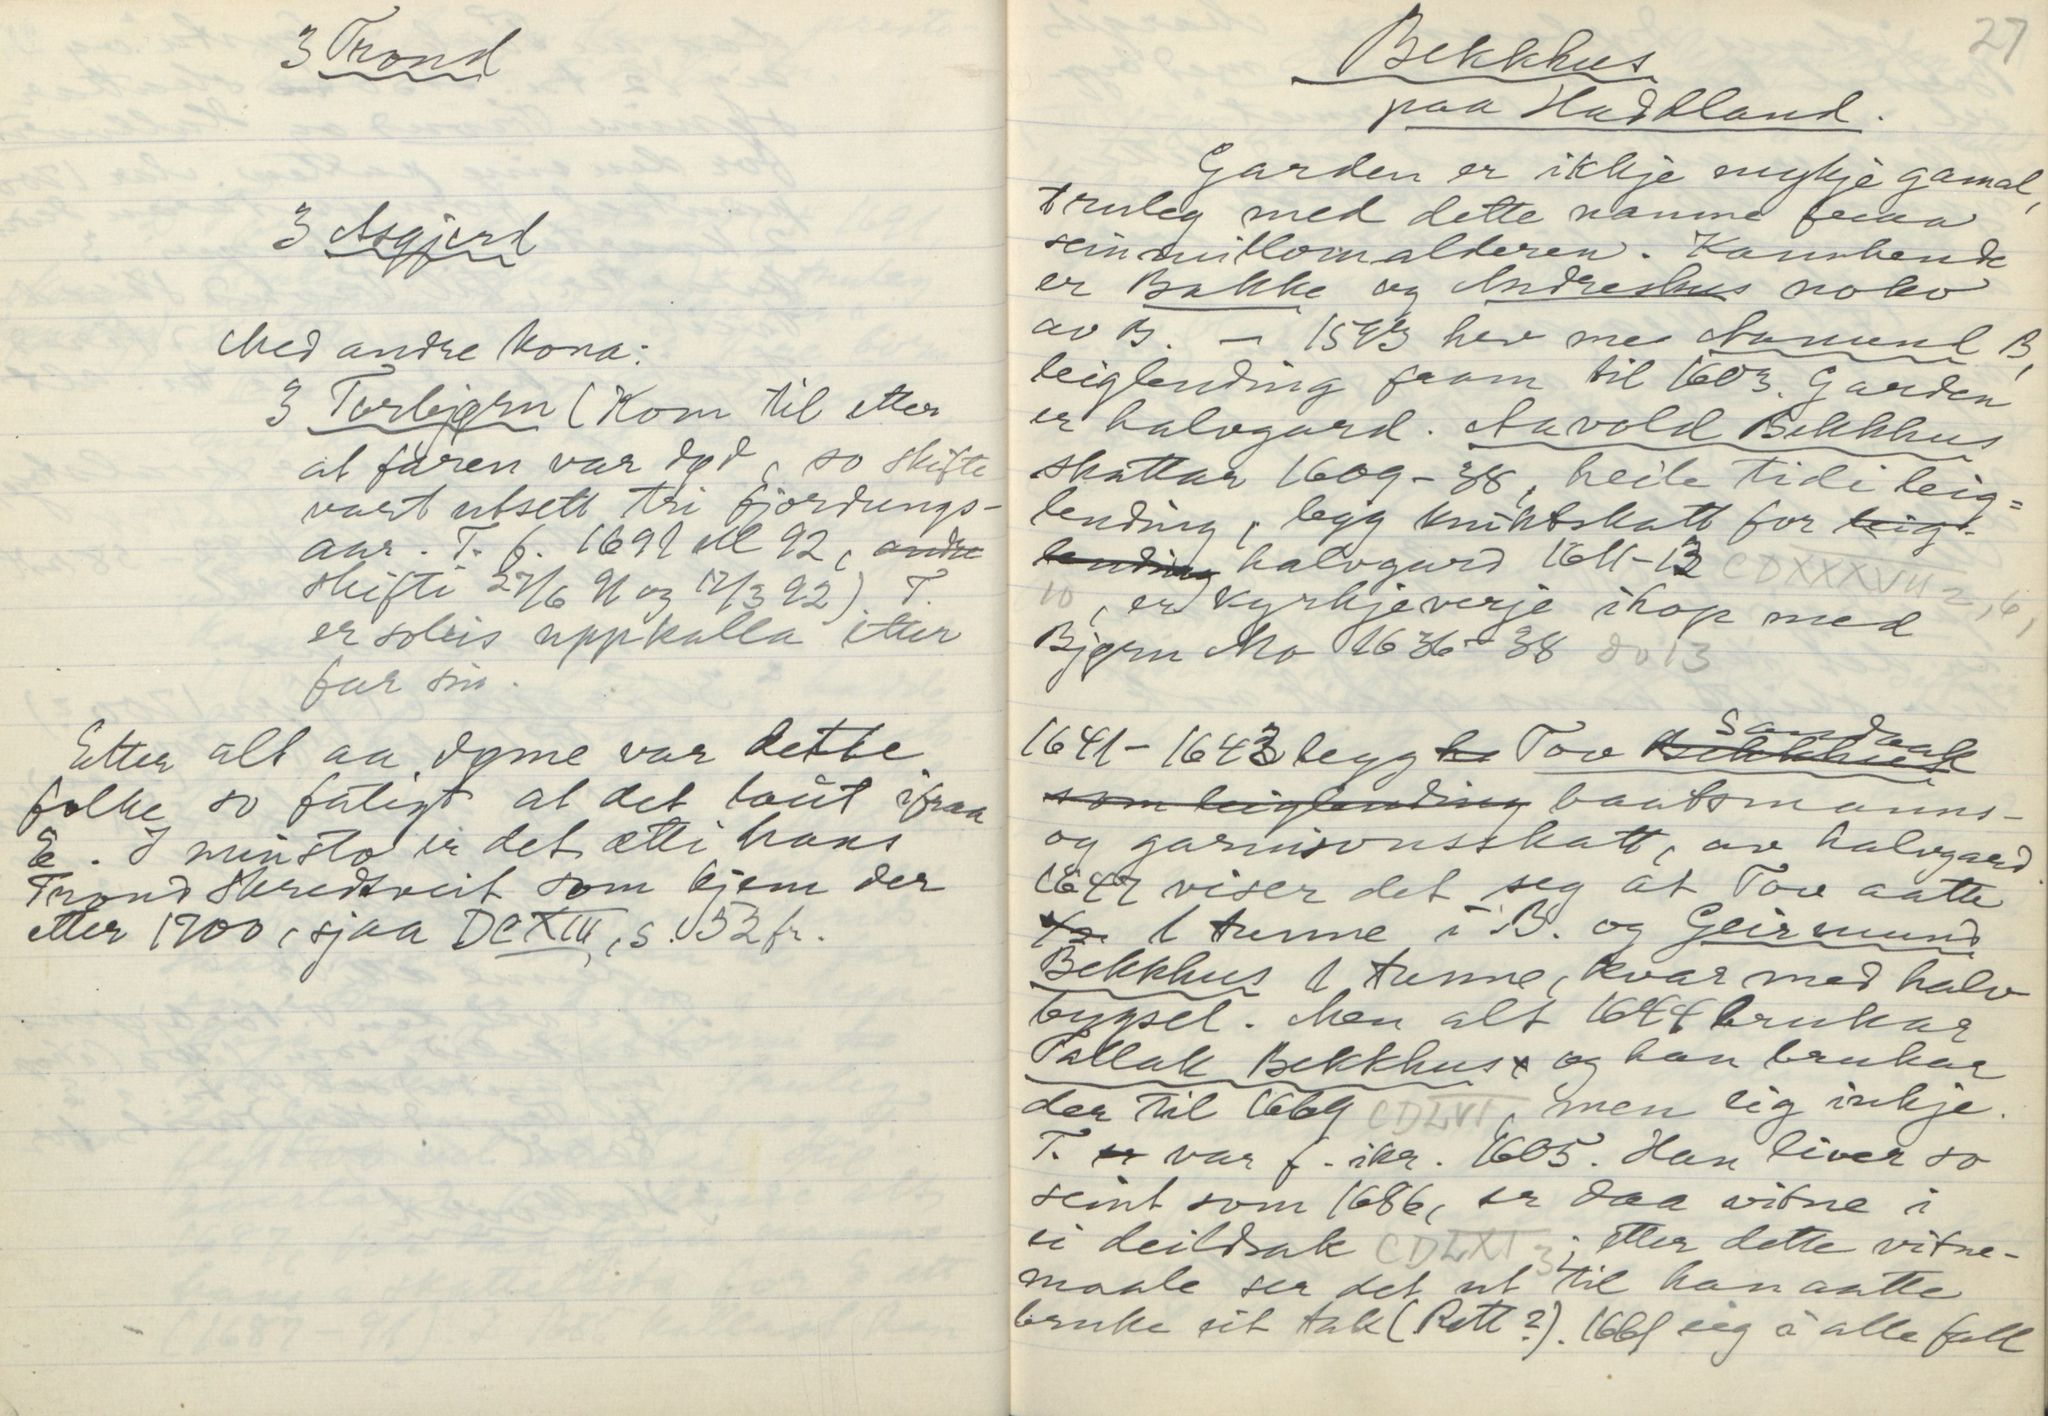 3 Trond
3 Asgjerd
Med andre kona:
3 Torbjørn (Kom til etter
at faren var død, so skifte
vart utsett tri fjordungs-
aar. T. f. 1691 el 92, andre
skifti 27/6 91 og 12/3 92). T.
er soleis uppkalla etter
far sin.
Etter alt aa døme var dette
folke so fatigt at det laut ifraa
E. I minsto er det ætti hans
Trond Skredtveit som kjem der
etter 1700, sjaa DCXIII, s. 52 fr.
27
Bekkhus
paa Haddland.
Garden er ikkje mykje gamal,
truleg med dette namne fraa
seinmillomalderen. Kanhende
er Bakke og Andreshus noko
av B. – 1593 hev me Aamund B,
leiglending fram til 1603. Garden
er halvgard. Aavold Bekkhus
skattar 1609-38, heile tidi leig=
lending, legg kniktskatt for leig-
lending halvgard 1611-13 CDXXXVII 2, 6,
10, er kyrkjeverje ihop med
Bjørn Mo 1636-38 do 13
Sandaak
1641-1643 legg Tov Bekkhus
som leiglending baatsmanns-
og garnisonsskatt, av halvgard.
1647 viser det seg at Tov aatte
1 tunne i B. og Geirmund
Bekkhus 1 tunne, kvar med halv
bygsel. Men alt 1644 brukar
Tallak Bekkhus x og han brukar
der til 1669 CDLVI, men eig inkje.
T. er var f. ikr. 1605. Han liver so
seint som 1686, er daa vitne i
ei deildsak CDLXI 3; etter dette vitne-
maale ser det ut til han aatte
bruke eit tak (Rett?). 1661 eig i alle fall